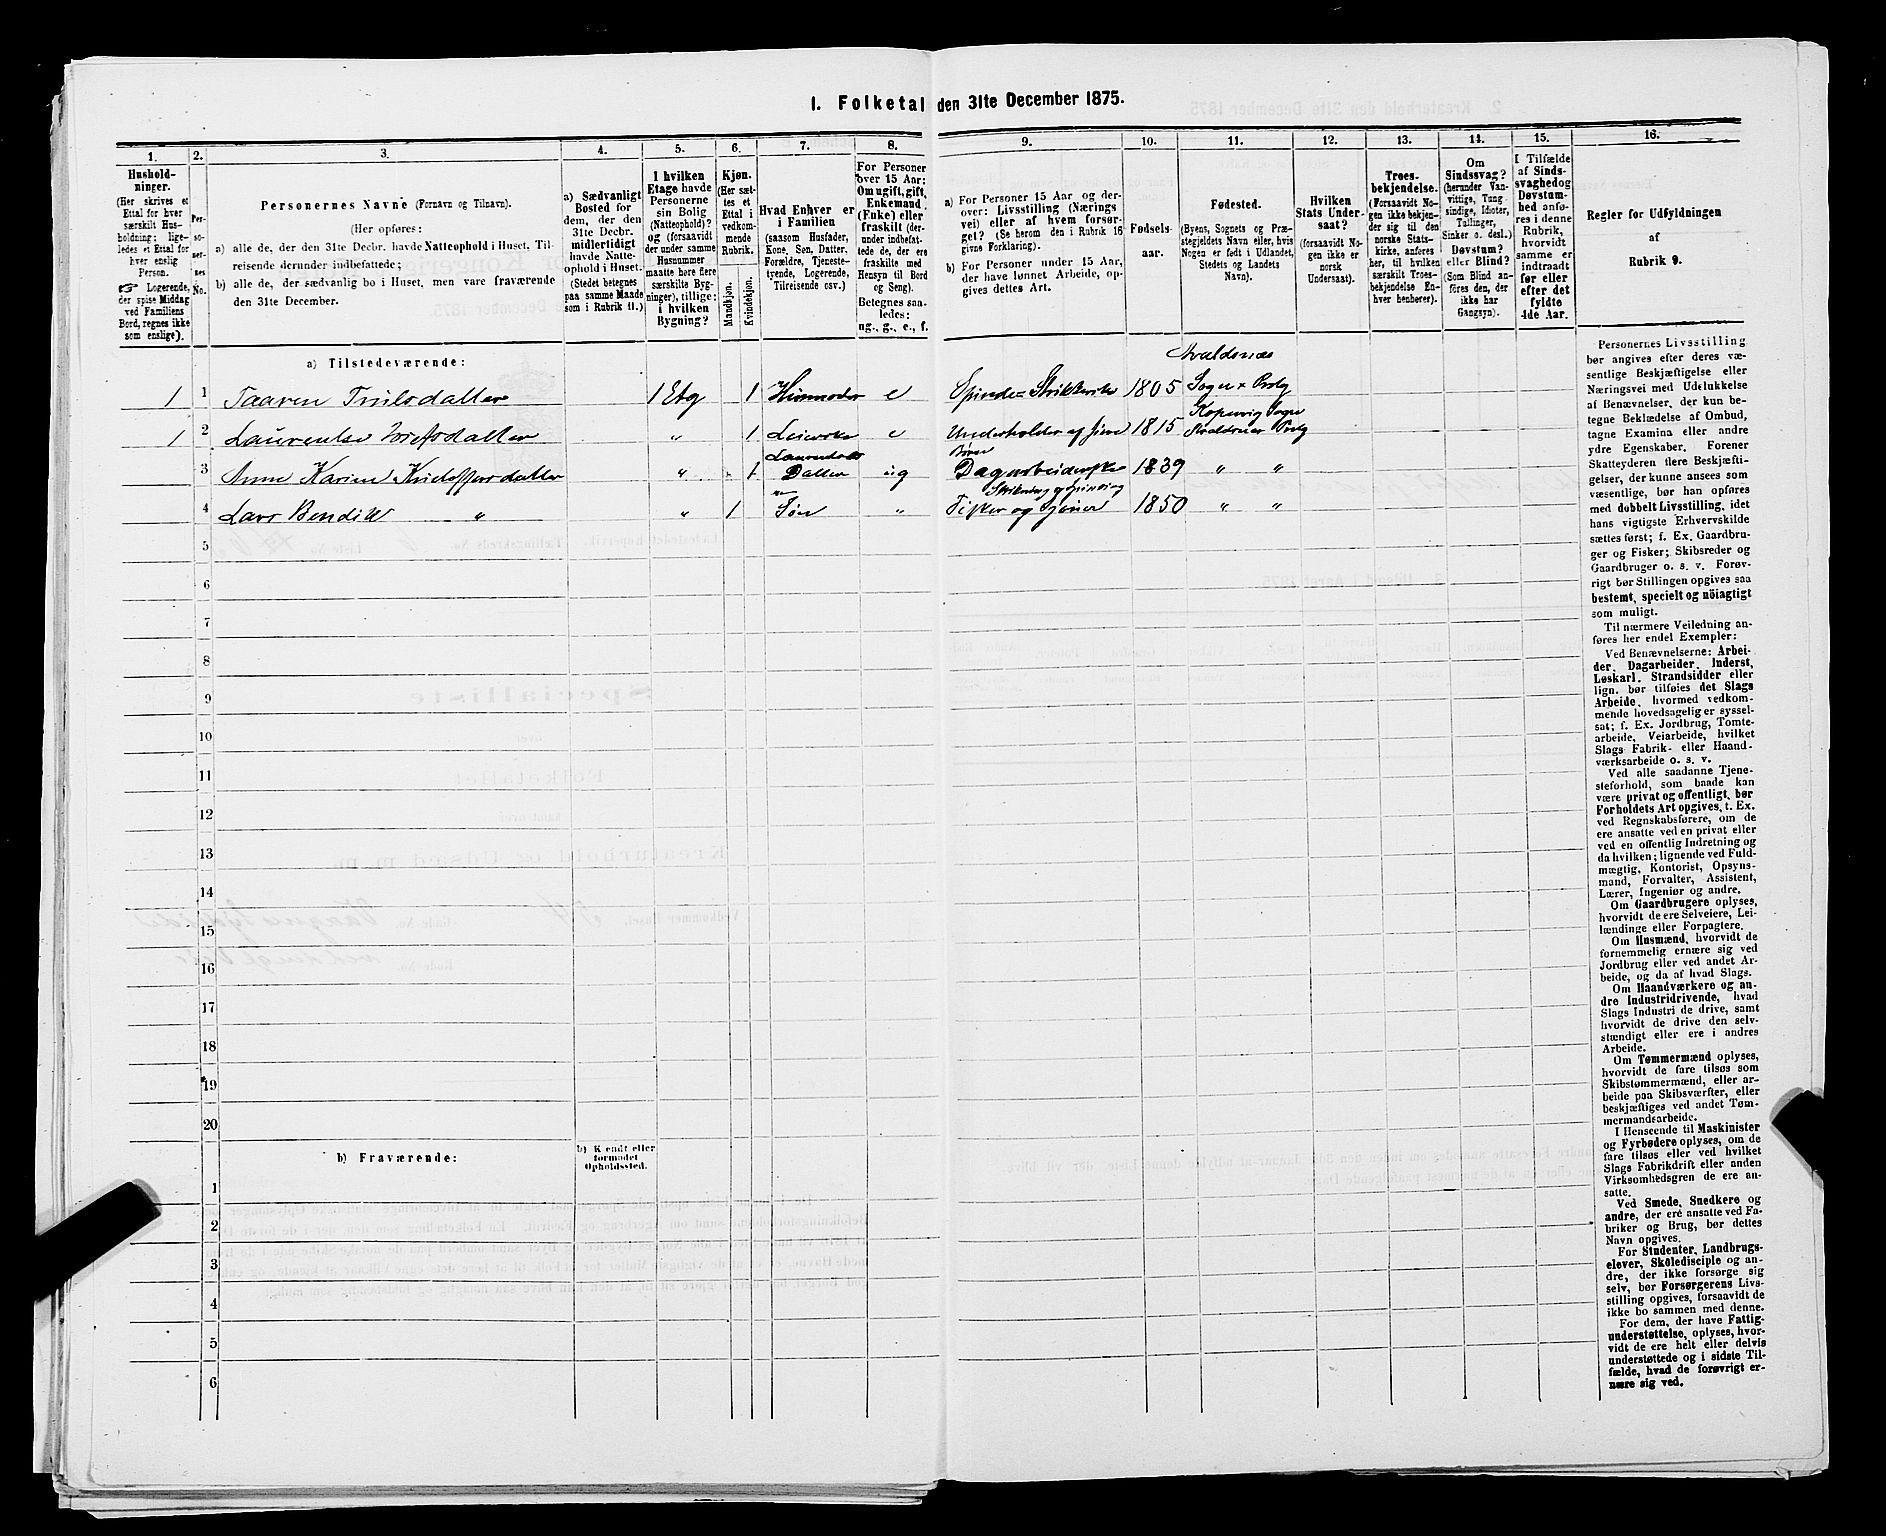 1. Folketal den 31te December 1875.
1.
2.
3.
4.
5.
6.
7.
8.
9.
10.
11.
12.
13.
14.
15.
16.
Hushold-
ninger.
(Her skrives et
Ettal for hver
særskilt Hus-
holdning; lige-
ledes et Ettal for
hver enslig
Person.
☞ Logerende,
der spise Middag
ved Familiens
Bord, regnes ikke
som enslige).
Per-
so-
ner-
nes
No.
Personernes Navne (Fornavn og Tilnavn).
(Her opføres:
a) alle de, der den 31te Decbr. havde Natteophold i Huset, Til-
reisende derunder indbefattede;
b) alle de, der sædvanlig bo i Huset, men vare fraværende
den 31te December.
a) Sædvanligt
Bosted for
dem, der den
31te Decbr.
midlertidigt
havde Natte-
ophold i Huset.
(Stedet betegnes
paa samme Maade
som i Rubrik 11.)
I hvilken
Etage havde
Personerne
sin Bolig
(Natteophold)?
og (forsaavidt
der under samme
Husnummer
maatte høre flere
særskilte Byg-
ninger), tillige:
i hvilken
Bygning?
Kjøn.
(Her sæt-
tes et
Ettal i
vedkom-
mende
Rubrik.
Mandkjøn.
Kvindekjøn.
Hvad Enhver er
i Familien
(saasom Husfader,
Kone, Søn, Datter,
Forældre, Tjeneste-
tyende, Logerende,
Tilreisende osv.)
For Personer
over 15 Aar:
Om ugift, gift,
Enkemand
(Enke) eller
fraskilt (der-
under indbefat-
tede de, der ere
fraskilte med
Hensyn til Bord
og Seng).
Betegnes saa-
ledes:
ug., g., e., f.
a) For Personer 15 Aar og der-
over: Livsstilling (Nærings
vei) eller af hvem forsør-
get? (Se herom den i Rubrik 16
givne Forklaring).
b) For Personer under 15 Aar,
der have lønnet Arbeide, op-
gives dettes Art.
Fødsels-
aar.
Fødested.
(Byens, Sognets og Præ-
stegjeldets Navn eller, hvis
Nogen er født i Udlandet,
Stedets og Landets
Navn).
Hvilken
Stats Under-
saat?
(forsaavidt No-
gen ikke er
norsk
Undersaat).
Troes-
bekjendelse.
(Forsaavidt No-
gen ikke bekjen-
der sig til den
norske Stats-
kirke, anføres
her, til hvilken
særskilt Troes-
bekjendelse En-
hver henhører).
Om
Sindssvag?
(herunder Van-
vittige, Tung-
sindige, Idioter,
Tullinger,
Sinker o. desl.)
Døvstum?
eller Blind?
(Som Blind an-
føres den, der
ikke har
Gangsyn).
I Tilfælde
af Sinds-
svaghed og
Døvstum-
hed anfø-
res i denne
Rubrik,
hvorvidt
samme er
indtraadt
før eller
efter det
fyldte
4de Aar.
Regler for Udfyldningen
af
Rubrik 9.
a) Tilstedeværende:
Avaldsnæs
1 1 Taaren Trulsdatter 1 Etg 1 Husmoder e Spinde= Strikkerske 1805 Sogn & Prstg
Kopervig Sogn
1 2 Laurentse Josefsdatter " 1 e Underholdes af sine 1815 Avaldsnæs Prstg
Børn
3 Anne Karine Kristoffersdatter " 1 Datter ug Dagarbeiderske 1839 " "
Strikning og Spinding
4 Lars Bendik " " 1 Søn " Fisker og 1850 " "
5
6
7
8
9
10
11
12
13
14
15
16
17
18
19
20
b) Fraværende:
b) Kjendt eller
formodet
Opholdssted.
1
2
3
4
5
6
Personernes Livsstilling
bør angives efter deres væ-
sentlige Beskjæftigelse eller
Næringsvei med Udelukkelse
af Benævnelser, der kun be-
tegne Beklædelse af Ombud,
tagne Examina eller andre
ydre Egenskaber. Forener
Skatteyderen flere Beskjæfti-
gelser, der kunne ansees som
væsentlige, bør han opføres
med dobbelt Livsstilling, idet
hans vigtigste Erhvervskilde
sættes først; f. Ex. Gaardbru-
ger og Fisker; Skibsreder og
Gaardbruger o. s. v. Forøv-
rigt bør Stillingen opgives saa
bestemt, specielt og nöiagtigt
som muligt.
Til nærmere Veiledning an-
føres her endel Exempler:
Ved Benævnelserne: Arbei-
der, Dagarbeider, Inderst,
Løskarl, Strandsidder eller
lign. bør tilføies det Slags
Arbeide, hvormed vedkom-
mende hovedsagelig er syssel-
sat; f. Ex. Jordbrug, Tomte-
arbeide, Veiarbeide, hvilket
Slags Fabrik- eller Haand-
værksarbeide o. s. v.
Ved alle saadanne Tjene-
steforhold, som baade kan
være privat og offentligt, bør
Forholdets Art opgives, t. Ex.
ved Regnskabsførere, om de
ere ansatte ved en privat eller
ved en offentlig Indretning og
da hvilken; lignende ved Fuld-
mægtig, Kontorist, Opsyns-
mand, Forvalter, Assistent,
Lærer, Ingeniør og andre.
Om Gaardbrugere oplyses,
hvorvidt de ere Selveiere, Lei-
lændinge eller Forpagtere.
Om Husmænd, hvorvidt de
fornemmelig ernære sig ved
Jordbrug eller ved andet Ar-
beide, og da af hvad Slags.
Om Haandværkere og an-
dre Industridrivende, hvad
Slags Industri de drive, samt
hvorvidt de drive den selv-
stændigt eller ere i andres
Arbeide.
Om Tømmermænd oplyses,
hvorvidt de fare tilsøs som
Skibstømmermænd, eller ar-
beide paa Skibsværfter, eller
beskjæftiges ved andet Tøm-
mermandsarbeide.
I Henseende til Maskinister
og Fyrbødere oplyses, om de
fare tilsøs eller ved hvilket
Slags Fabrikdrift eller anden
Virksomhedsgren de ere an-
satte.
Ved Smede, Snedkere og
andre, der ere ansatte ved Fa-
briker og Brug, bør dettes
Navn opgives.
For Studenter, Landbrugs-
elever, Skoledisciple og an-
dre, der ikke forsørge sig
selv, bør Forsørgerens Livs-
stilling opgives, forsaavidt de
ikke bo sammen med denne.
For dem, der have Fattig-
understøttelse, oplyses, hvor-
vidt de ere helt eller delvis
understøttede og i sidste Til-
fælde, hvad de forøvrigt er-
nære sig ved.